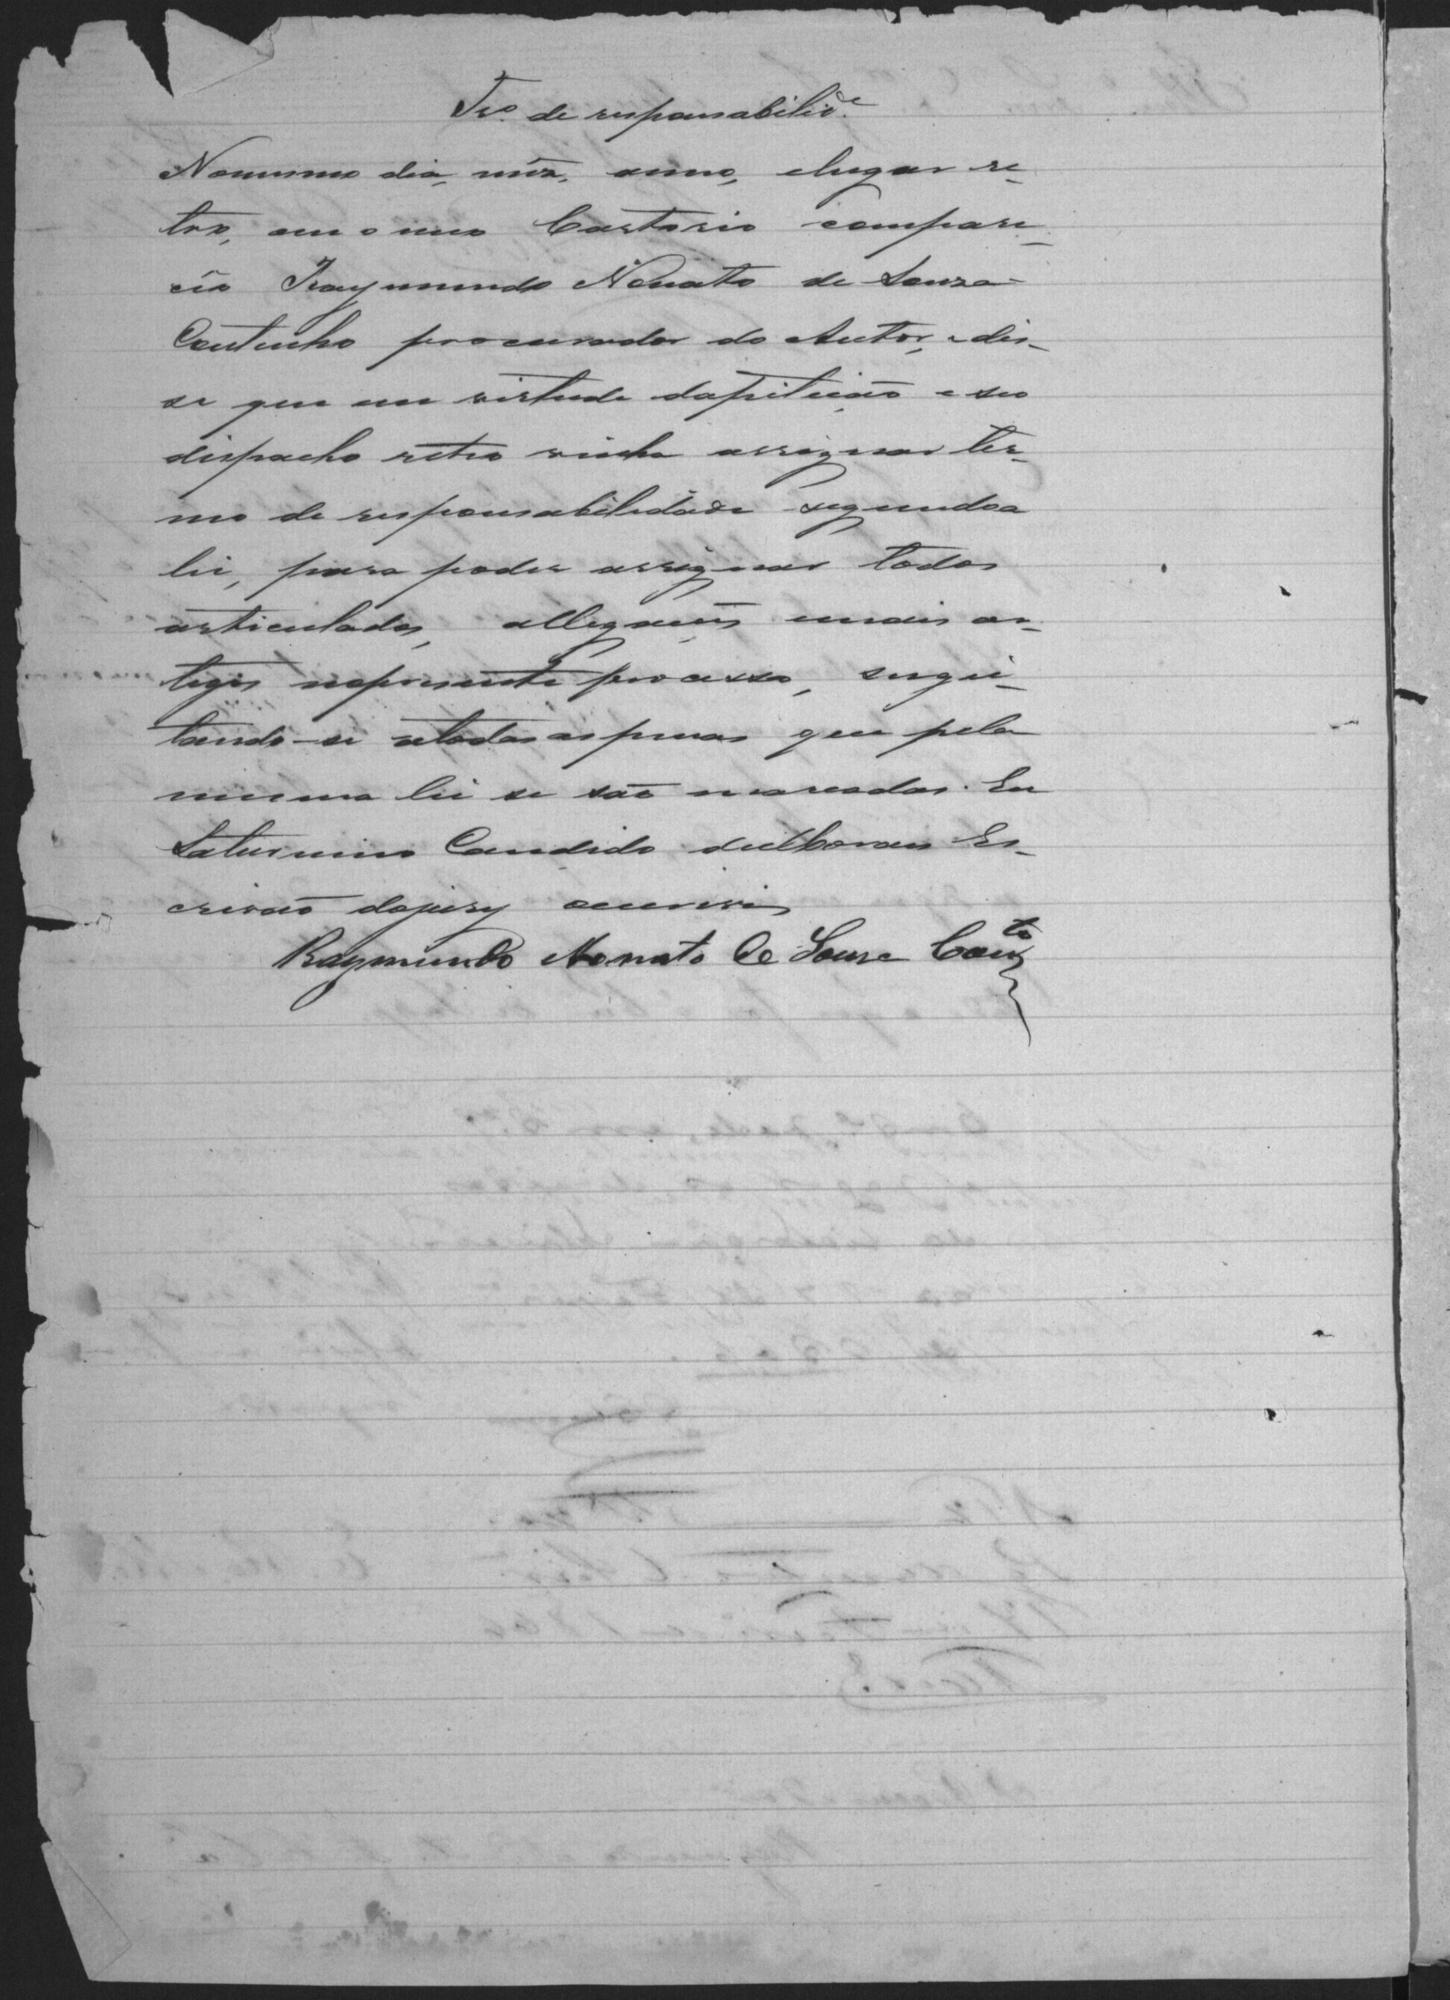 Tr.o de responsabilid.e
Nomesmo dia, mez, anno, elugar re-
tro, em o meo Cartorio compare-
cêo Raymundo Nonato de Souza
Coutinho procurador do Autor, e dis-
se que em virtude dapetição e seo
despacho retro vinha assignar ter-
mo de responsabilidade segundoa
lei, para poder assignar todos
articulados, allegações emais ar-
tigos nopresente processo, sugei-
tando-se atodas aspenas que pela
mesma lei se são marcadas. Eu
Saturnino Candido Es-
crivão dojury oescrevi
Raymundo Nonato de Souza Cout.o